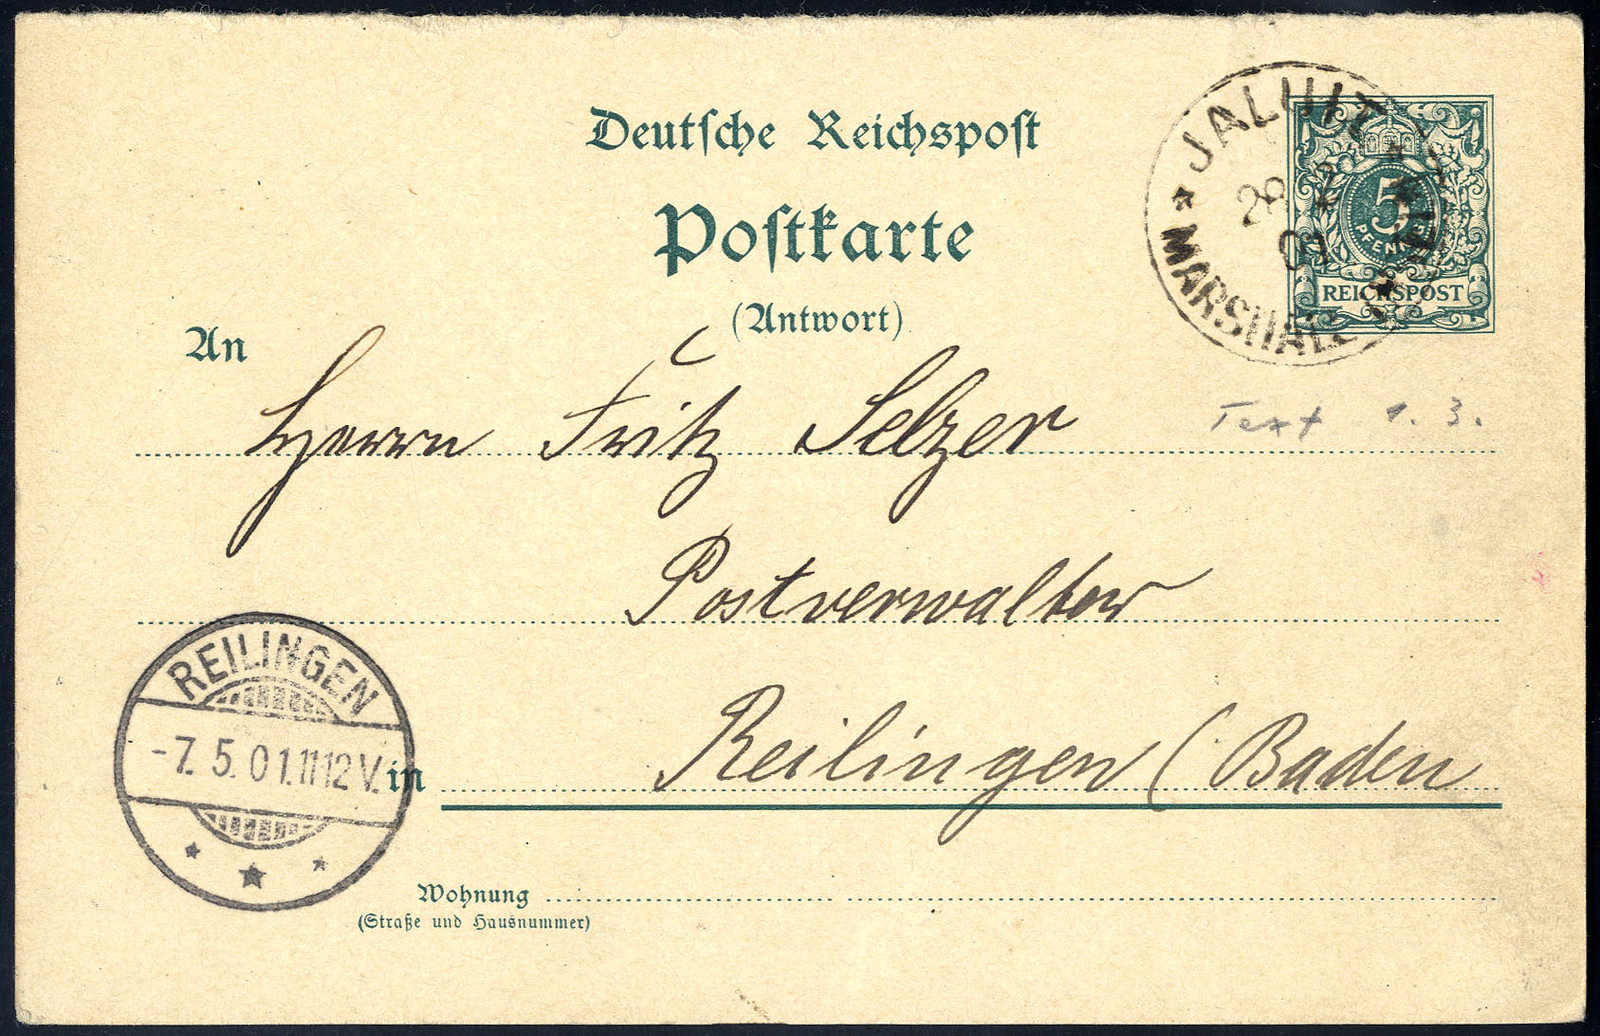 Deutsche Reichspost
Postkarte
(Antwort)
JALUIT
MARSHALL
01
5
PFENNIG
REICHSPOST
An
Herrn Fritz Selzer
Text 1.3.
Postverwalter
REILINGEN
-7.5.01.11-12V.
in Reilingen (Baden
Wohnung
(Straße und Hausnummer)